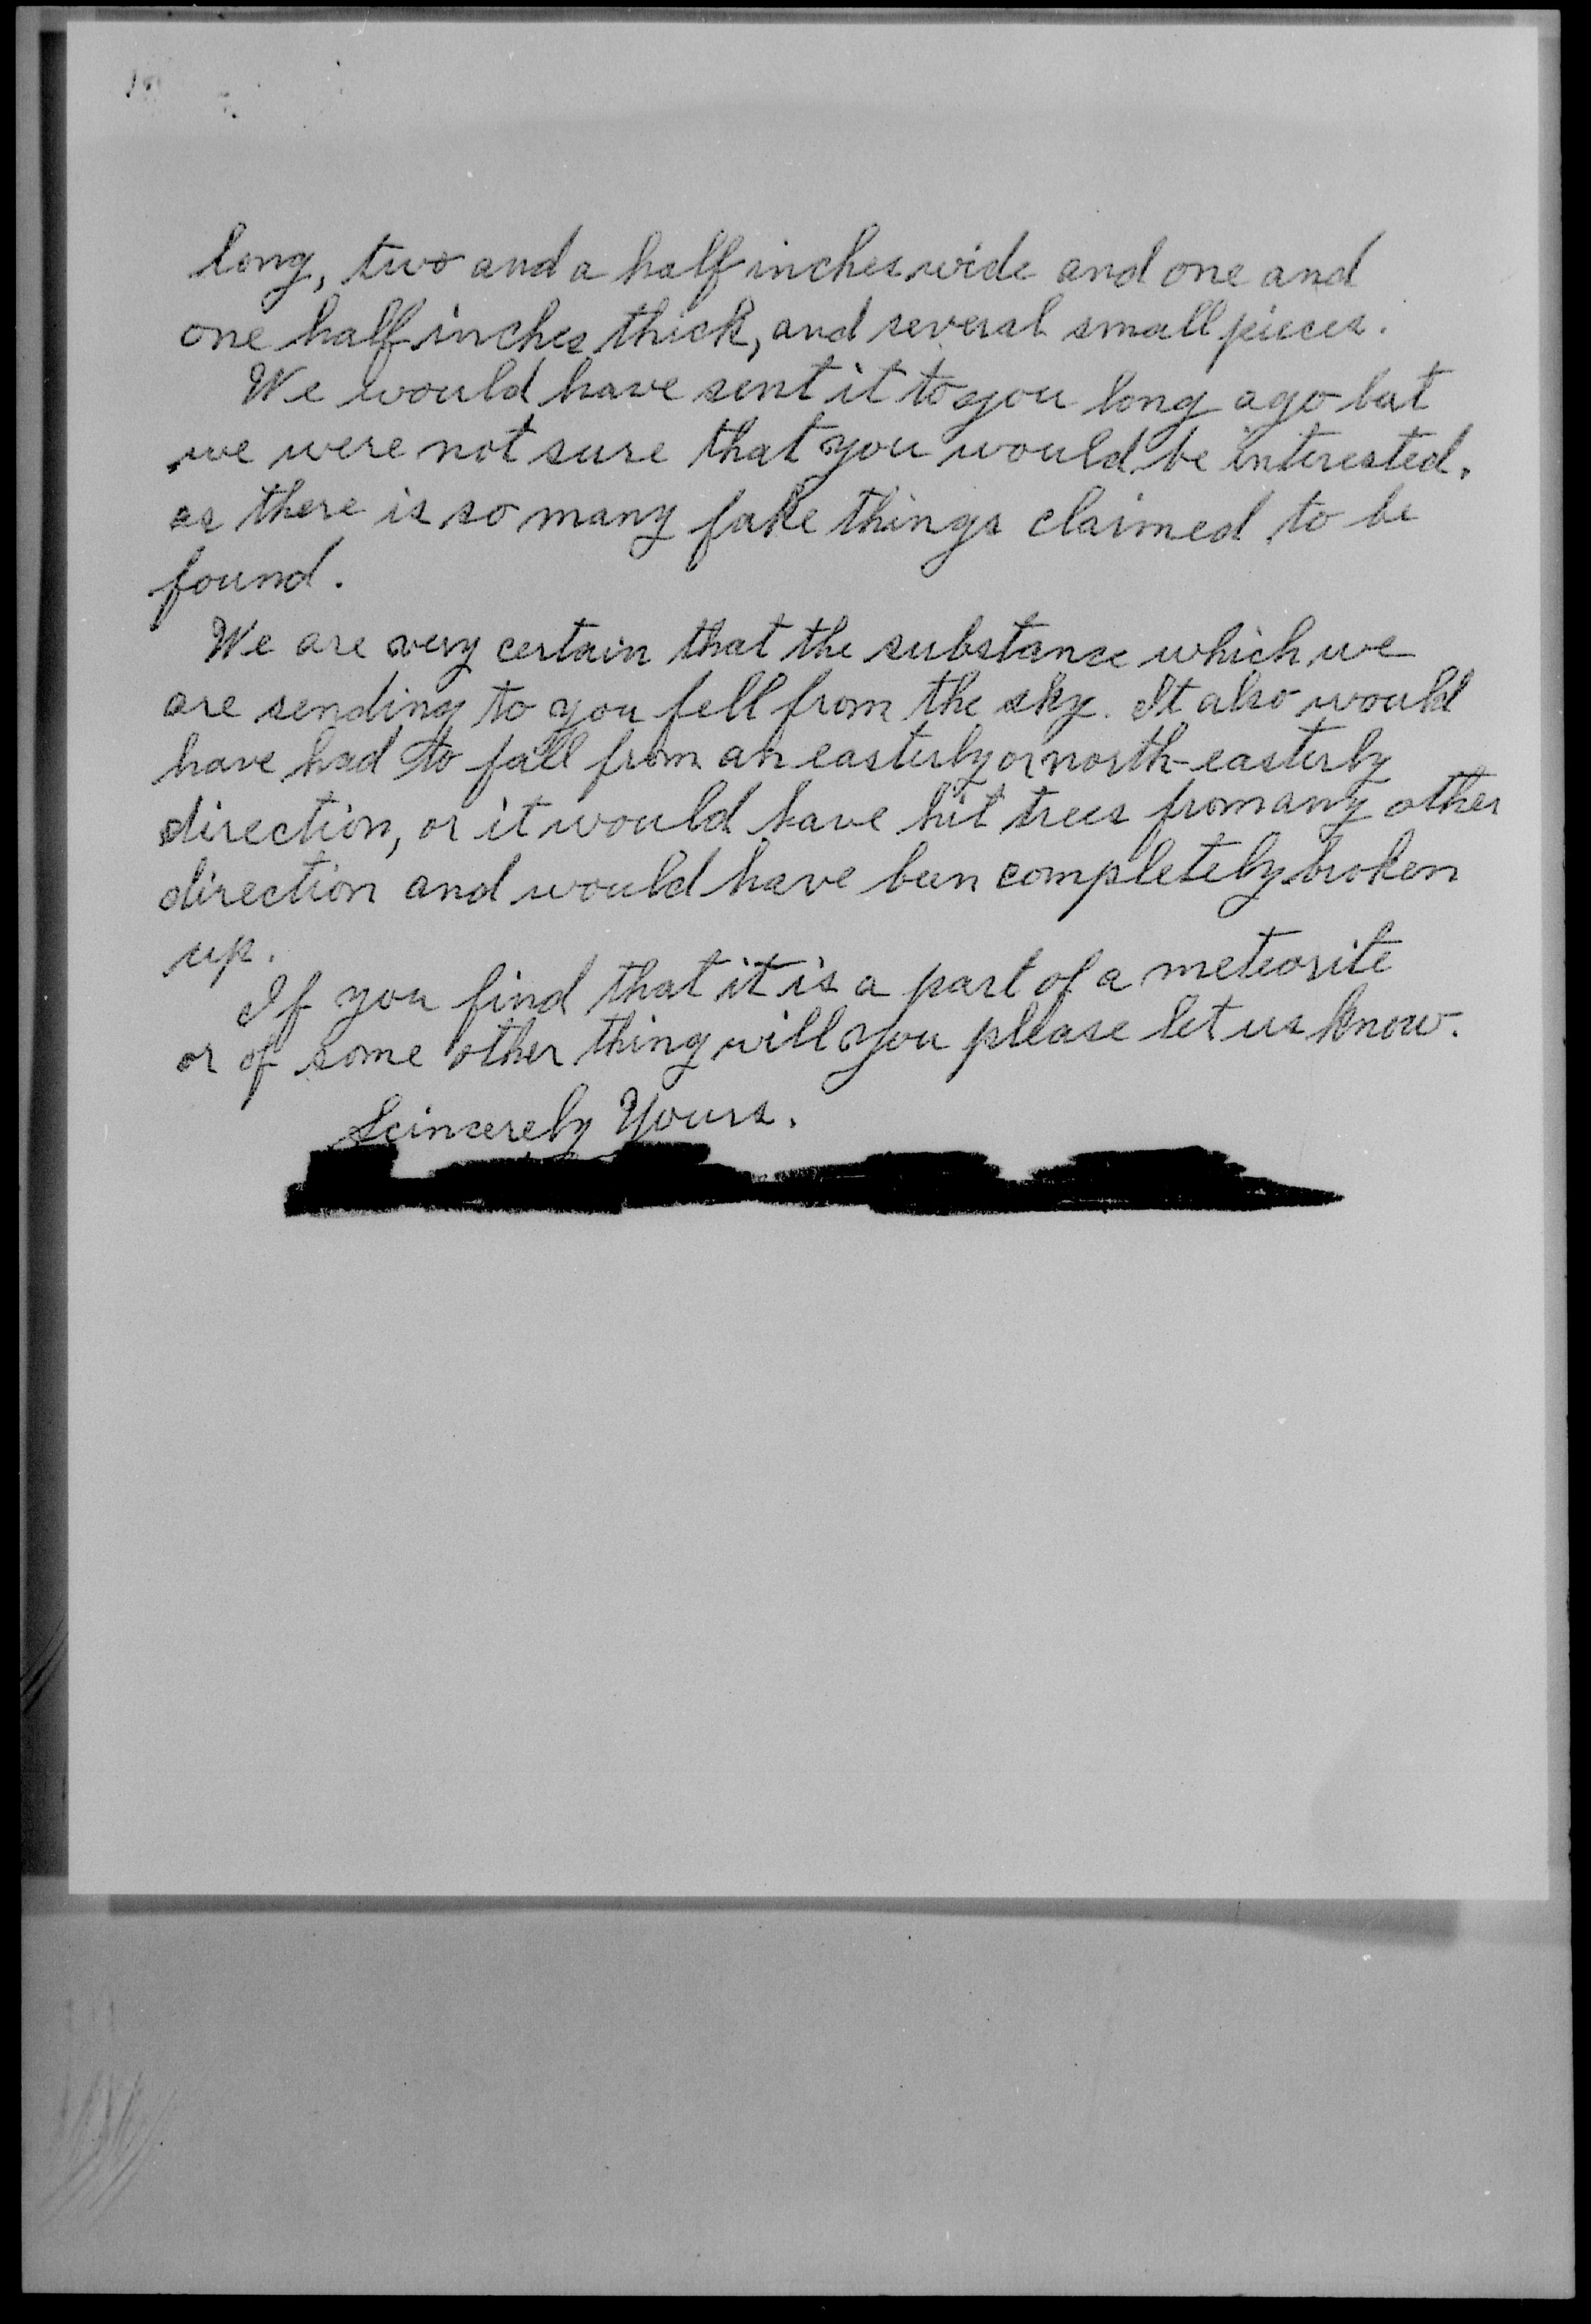 long, two and a half inches wide and one and
one half inches thick, and several small pieces.
We would have sent it to you long ago but
we were not sure that you would be interested.
as there is so many fake things claimed to be
found.
We are very certain that the substance which we
are sending to you fell from the sky. It also would
have had to fall from an easterly or north-easterly
direction, or it would have hit trees from any other
direction and would have been completely broken
up.
If you find that it is a part of a meteorite
or of some other thing will you please let us know.
Scincerely Yours.